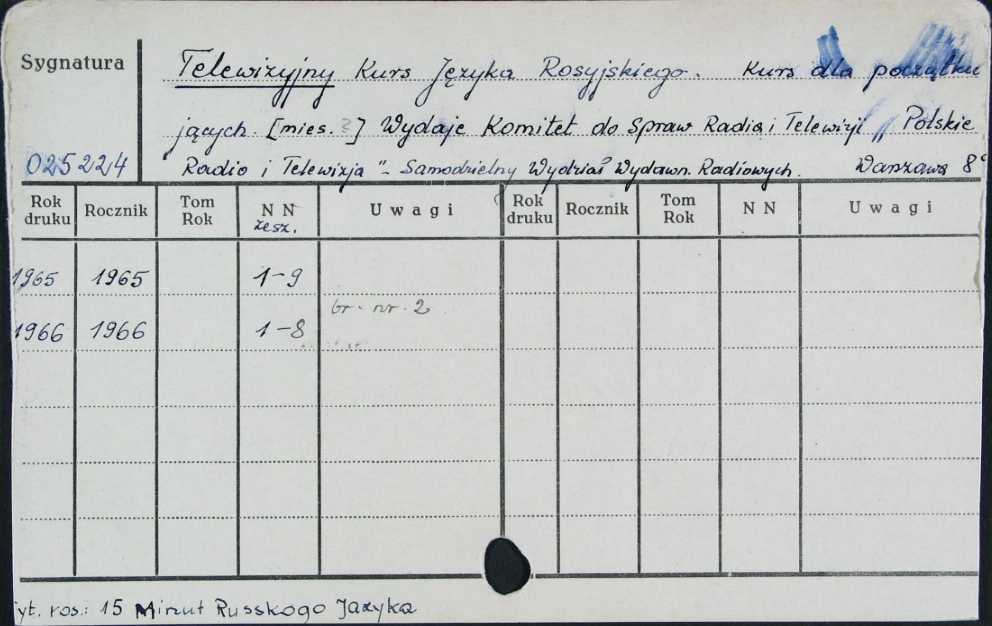 Sygnatura
Telewizyjny Kurs Języka Rosyjskiego. Kurs dla początku
jących. [mies. ?] Wydaje Komitet do Spraw Radia i Telewizji „Polskie
025224 Radio i Telewizja" - Samodzielny Wydział Wydawn. Radiowych. Warszawa 8°
Rok druku Rocznik Tom Rok N N zesz. Uwagi Rok druku Rocznik Tom Rok N N Uwagi
1965 1965 1-9
br. nr. 2
1966 1966 1-8
yt. ros.: 15 Minut Russkogo Jazyka